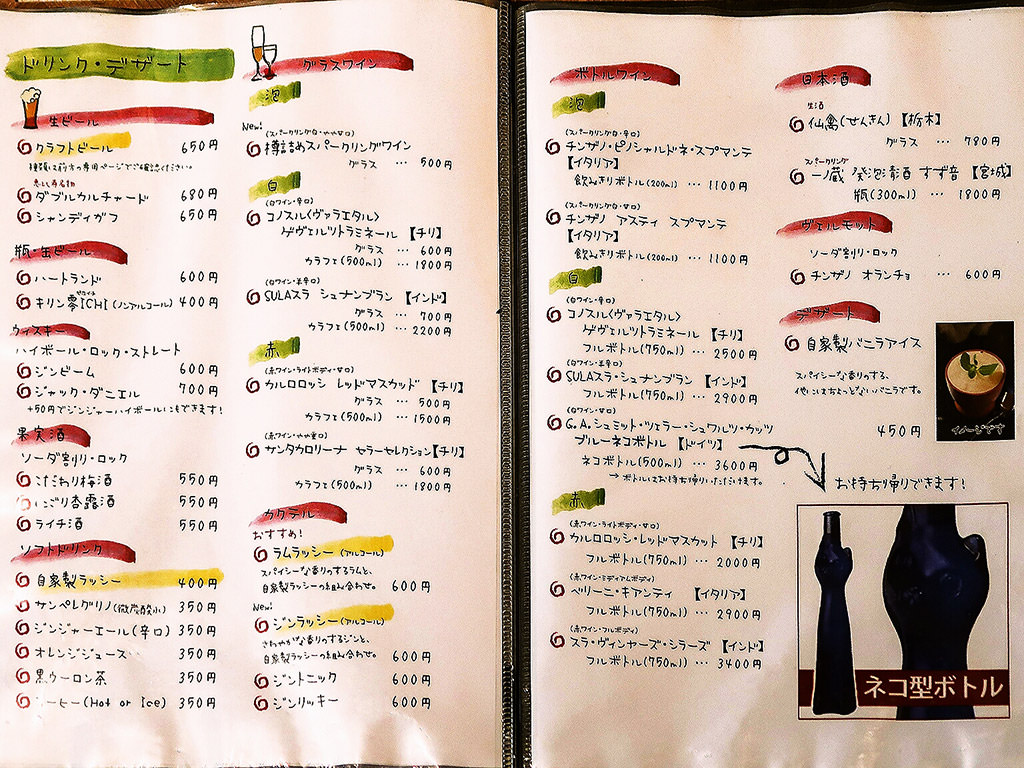 ドリンク・デザート
生ビール
クラフトビール 650円
種類は前方の専用ページでご確認ください。
ダブルカルチャード 680円
シャンディガフ 650円
瓶・缶ビール
ハートランド 600円
キリン零ICHI(ノンアルコール) 400円
ウィスキー
ハイボール・ロック・ストレート
ジンビーム 600円
ジャック・ダニエル 700円
+50円でジンジャーハイボールにもできます!
果実酒
ソーダ割り・ロック
こだわり梅酒 550円
にごり杏露酒 550円
ライチ酒 550円
ソフトドリンク
自家製ラッシー 400円
サンペレグリノ(微炭酸水) 350円
ジンジャーエール(辛口) 350円
オレンジジュース 350円
黒ウーロン茶 350円
コーヒー(Hot or Ice) 350円
グラスワイン
泡
New! (スパークリング白・やや甘口)
樽詰めスパークリングワイン
グラス … 500円
白
(白ワイン・辛口)
コノスル〈ヴァラエタル〉
ゲヴェルツトラミネール 【チリ】
グラス … 600円
カラフェ(500ml) … 1800円
(白ワイン・半辛口)
SULAスラ シュナンブラン 【インド】
グラス … 700円
カラフェ(500ml) … 2200円
赤
(赤ワイン・ライトボディ・甘口)
カルロロッシ レッドマスカッド 【チリ】
グラス … 500円
カラフェ(500ml) … 1500円
(赤ワイン・やや重口)
サンタカロリーナ セラーセレクション【チリ】
グラス … 600円
カラフェ(500ml) … 1800円
カクテル
おすすめ!
ラムラッシー(アルコール)
スパイシーな香りのするラムと、
自家製ラッシーの組み合わせ。 600円
New!
ジンラッシー(アルコール)
さわやかな香りのするジンと、
自家製ラッシーの組み合わせ。 600円
ジントニック 600円
ジンリッキー 600円
ボトルワイン
泡
(スパークリング白・辛口)
チンザノ・ピノシャルドネ・スプマンテ
【イタリア】
飲みきりボトル(200ml) … 1100円
(スパークリング白・甘口)
チンザノ アスティ スプマンテ
【イタリア】
飲みきりボトル(200ml) … 1100円
白
(白ワイン・辛口)
コノスル〈ヴァラエタル〉
ゲヴェルツトラミネール 【チリ】
フルボトル(750ml) … 2500円
(白ワイン・半辛口)
SULAスラ・シュナンブラン 【インド】
フルボトル(750ml) … 2900円
(白ワイン・甘口)
G.A.シュミット・ツェラー・シュワルツ・カッツ
ブルーネコボトル 【ドイツ】
ネコボトル(500ml) … 3600円
→ ボトルはお持ち帰りいただけます。
赤
(赤ワイン・ライトボディ・甘口)
カルロロッシ・レッドマスカット 【チリ】
フルボトル(750ml) … 2000円
(赤ワイン・ミディアムボディ)
ベリーニ・キアンティ 【イタリア】
フルボトル(750ml) … 2900円
(赤ワイン・フルボディ)
スラ・ヴィンヤーズ・シラーズ 【インド】
フルボトル(750ml) … 3400円
日本酒
生酒
仙禽(せんきん)【栃木】
グラス … 780円
スパークリング
一ノ蔵 発泡清酒 すず音 【宮城】
瓶(300ml) … 1800円
ヴェルモット
ソーダ割り・ロック
チンザノ オランチョ … 600円
デザート
自家製バニラアイス
スパイシーな香りのする、
他にはちょっとないバニラです。
450円
イメージです
お持ち帰りできます!
ネコ型ボトル